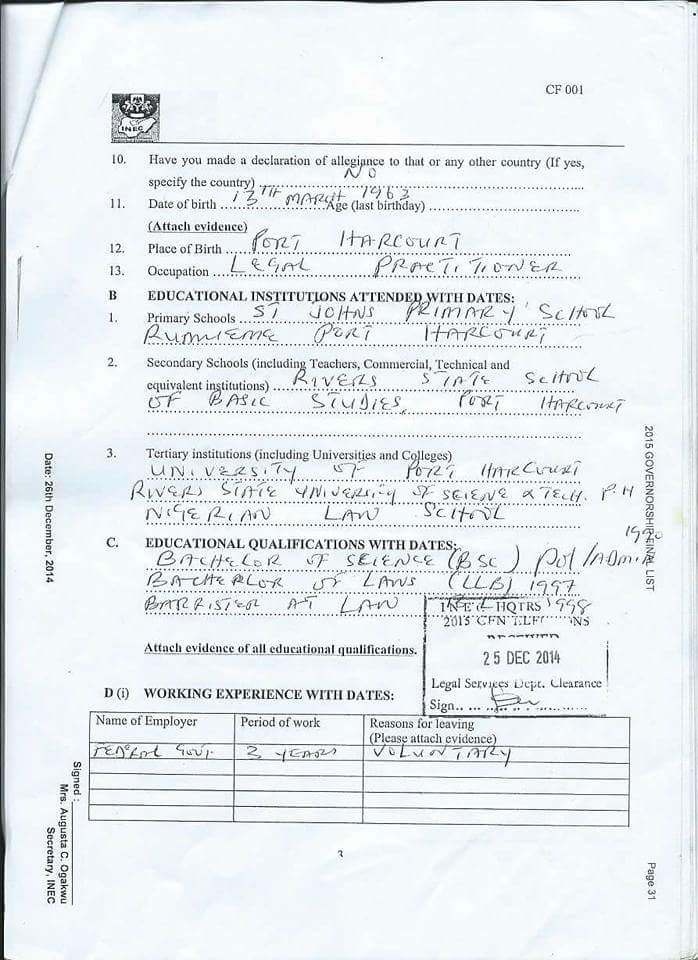 CF 001
INEC
10. Have you made a declaration of allegiance to that or any other country (If yes,
specify the country) NO
11. Date of birth 13TH MARCH 1963 Age (last birthday)
(Attach evidence)
12. Place of Birth PORT HARCOURT
13. Occupation LEGAL PRACTITIONER
B EDUCATIONAL INSTITUTIONS ATTENDED WITH DATES:
1. Primary Schools ST JOHNS PRIMARY SCHOOL
RUMUEME PORT HARCOURT
2. Secondary Schools (including Teachers, Commercial, Technical and
equivalent institutions) RIVERS STATE SCHOOL
OF BASIC STUDIES, PORT HARCOURT
3. Tertiary institutions (including Universities and Colleges)
UNIVERSITY OF PORT HARCOURT
RIVERS STATE UNIVERSITY OF SCIENCE & TECH. P.H
NIGERIAN LAW SCHOOL
C. EDUCATIONAL QUALIFICATIONS WITH DATES:
BACHELOR OF SCIENCE (BSC) POL/ADMIN
BACHERLOR OF LAWS (LLB) 1997
BARRISTER AT LAW 1998
INEC HQTRS
2015 GEN ELECTIONS
Attach evidence of all educational qualifications.
25 DEC 2014
Legal Services Dept. Clearance
Sign
D (i) WORKING EXPERIENCE WITH DATES:
Name of Employer Period of work Reasons for leaving
(Please attach evidence)
FEDERAL GOVT. 3 YEARS VOLUNTARY
3
Date: 26th December, 2014
Signed:
Mrs. Augusta C. Ogakwu
Secretary, INEC
2015 GOVERNORSHIP FINAL LIST
Page 31